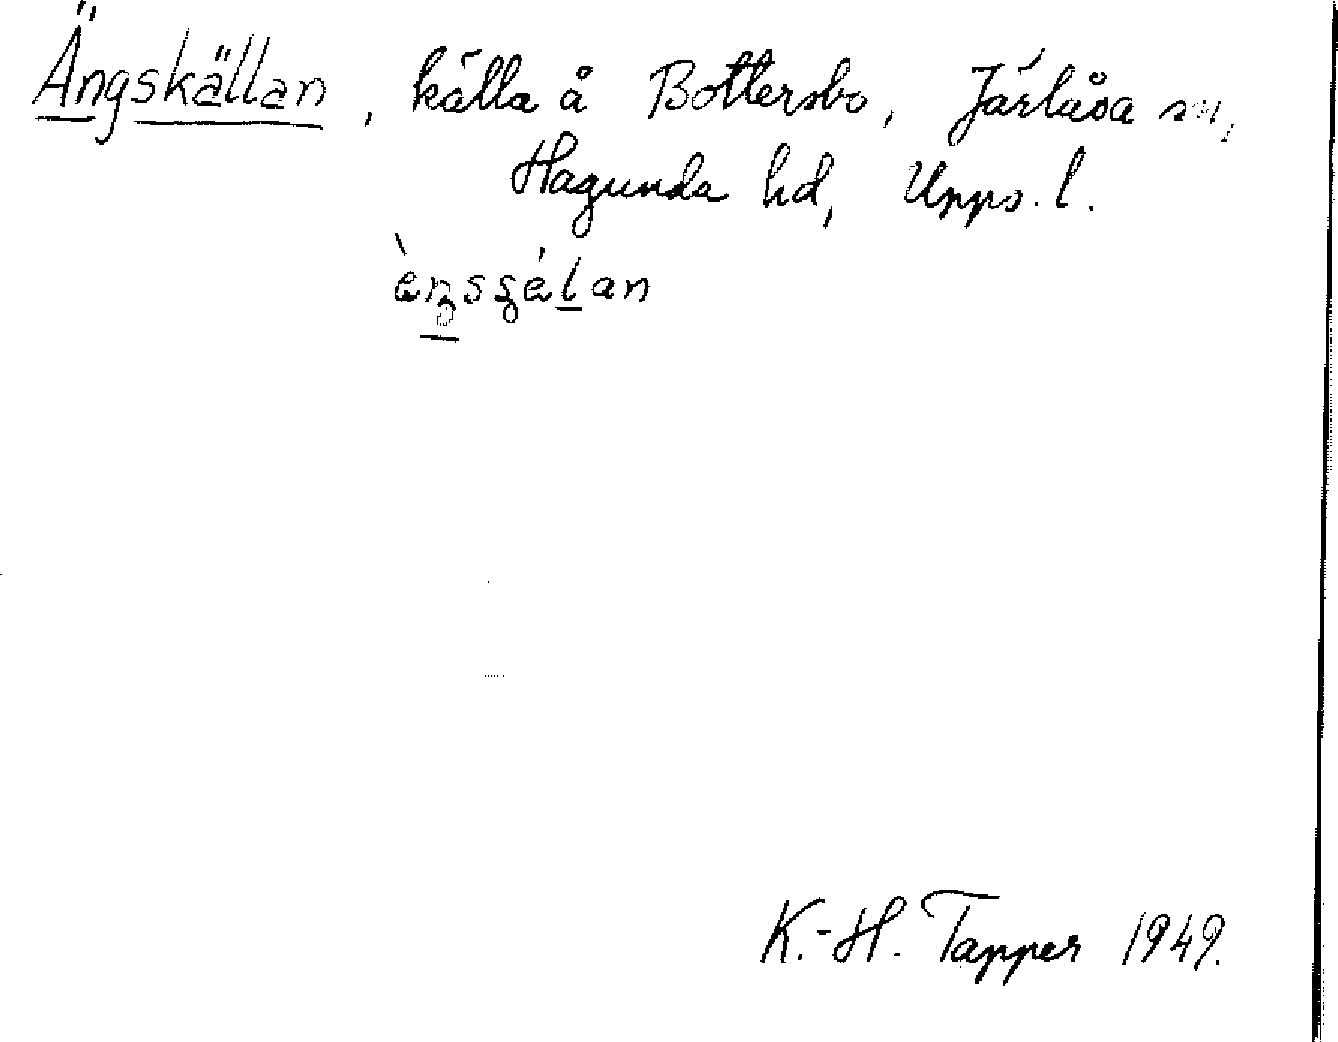 Ängskällan, källa å Bottersbo, Järlåsa sn,
Hagunda hd, Upps. l.
K.-H. Tapper 1949.